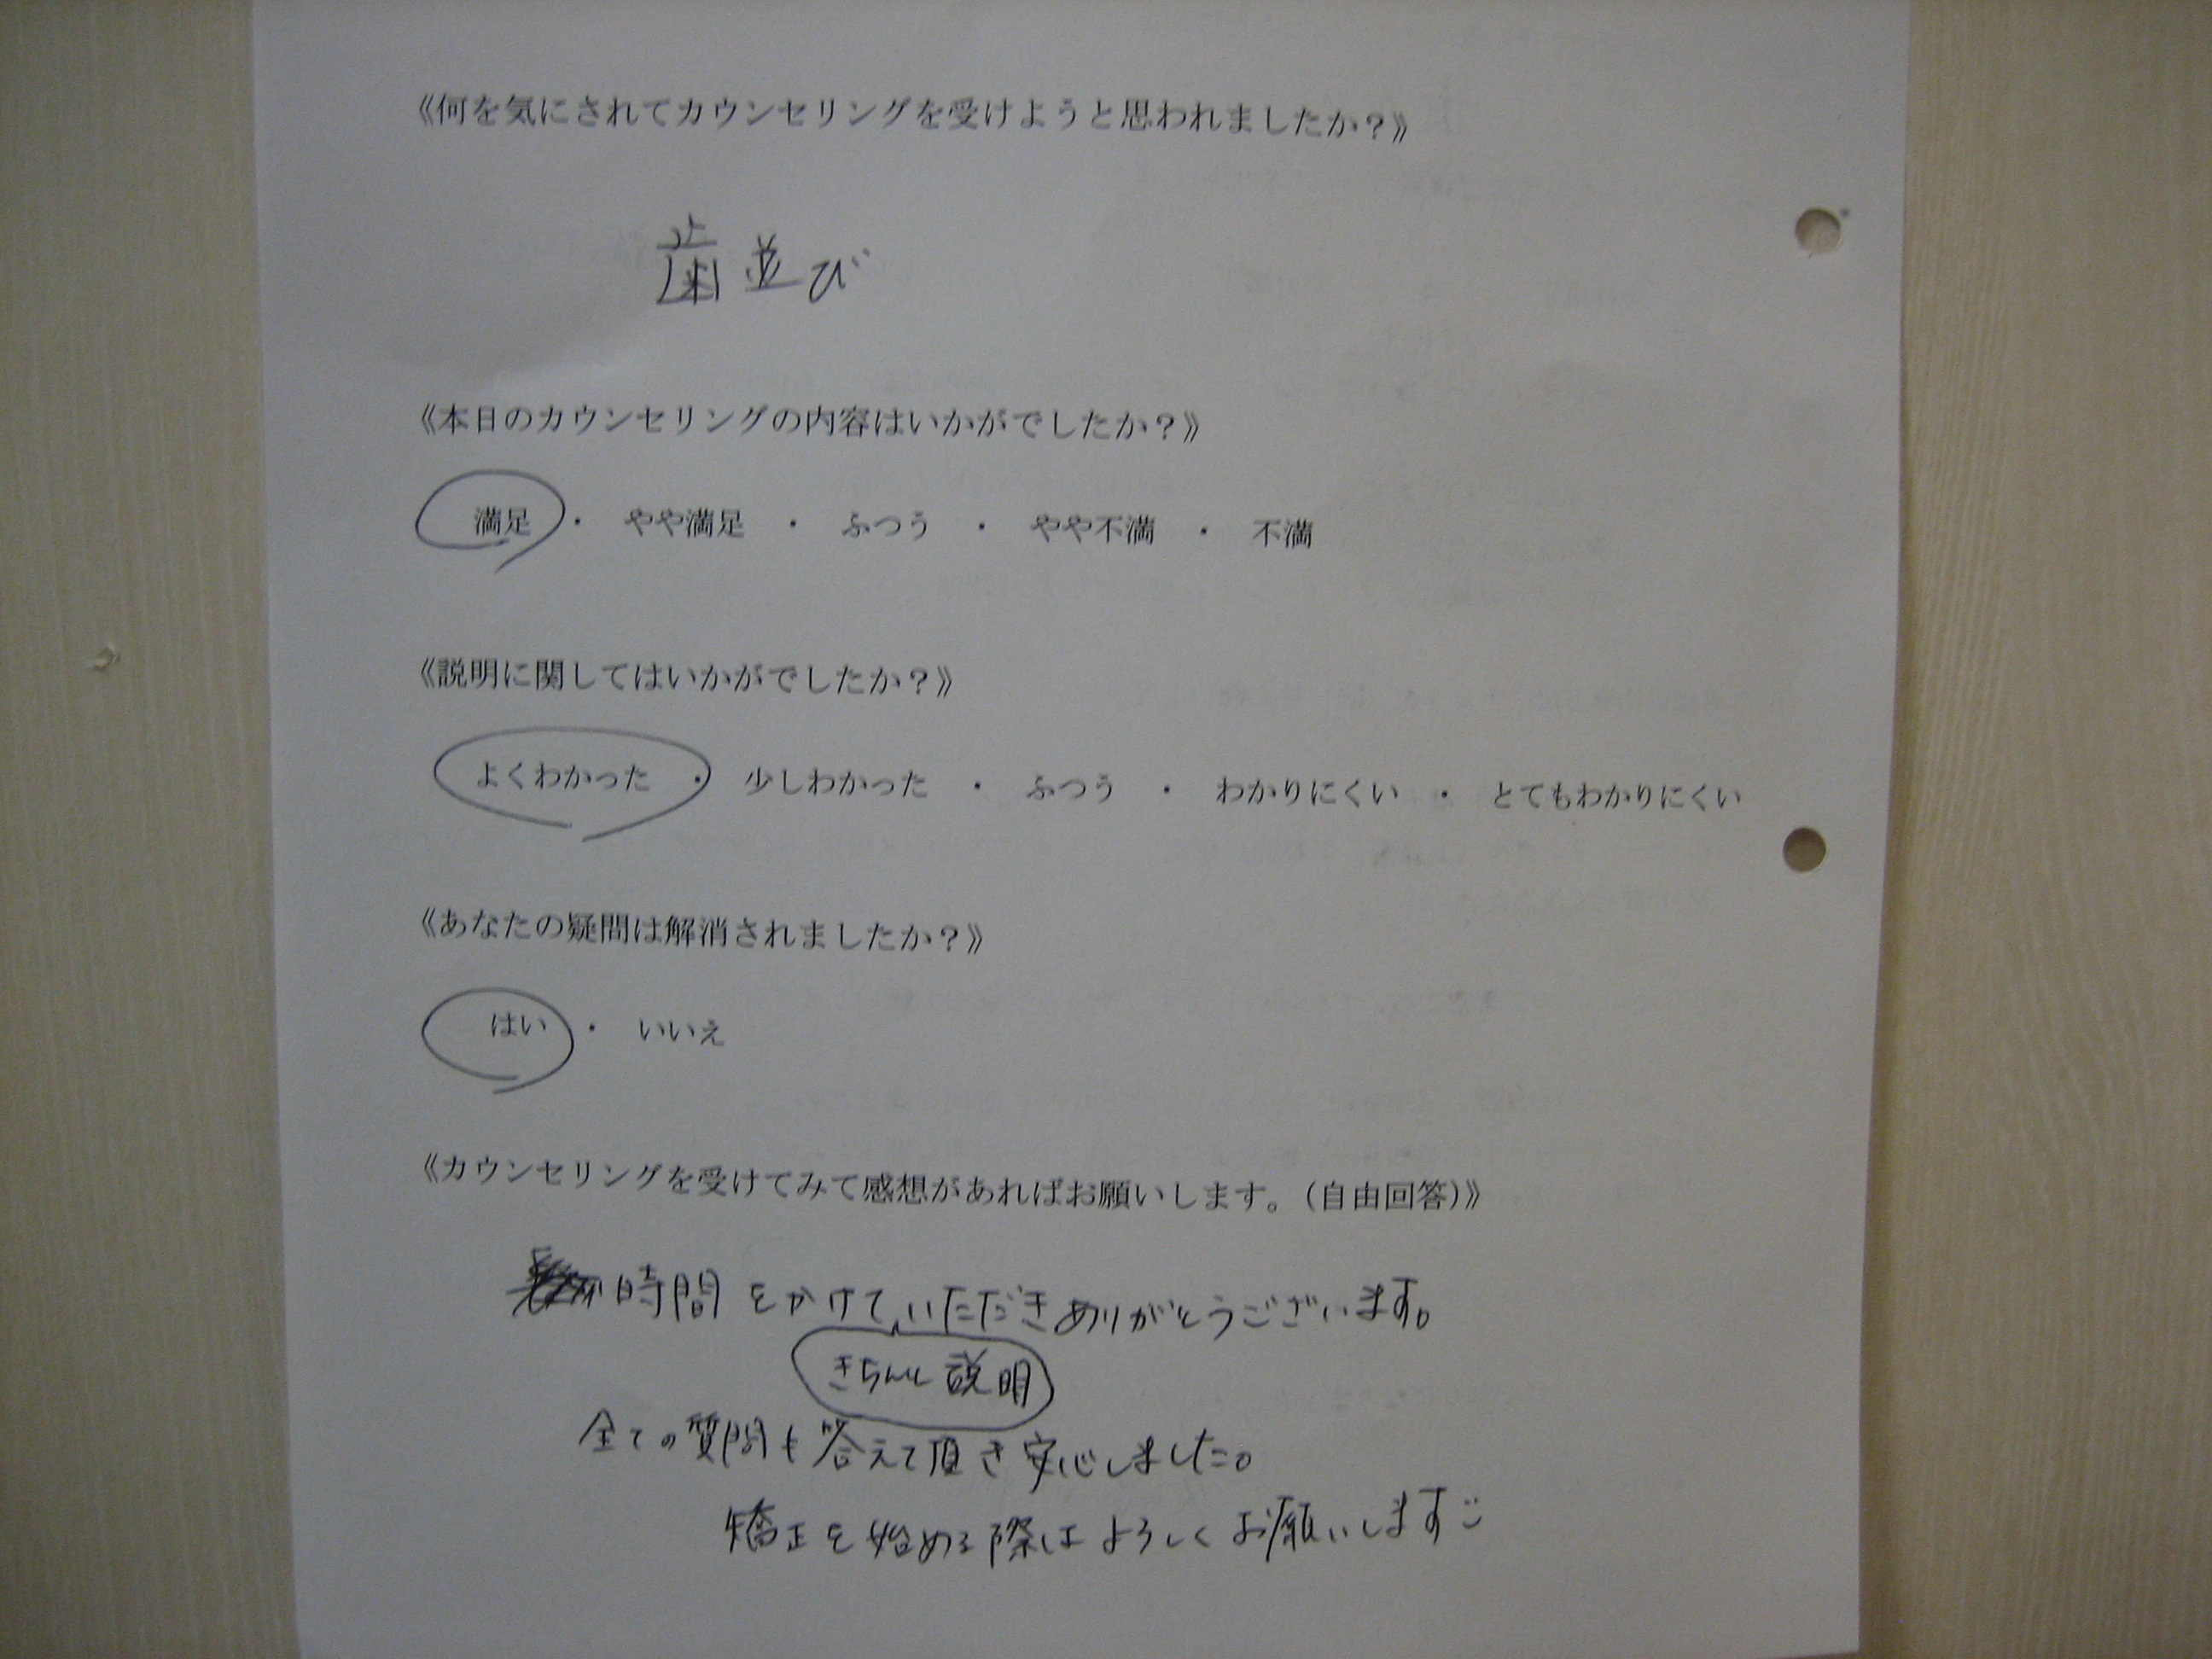 《何を気にされてカウンセリングを受けようと思われましたか？》
歯並び
《本日のカウンセリングの内容はいかがでしたか？》
満足 ・ やや満足 ・ ふつう ・ やや不満 ・ 不満
《説明に関してはいかがでしたか？》
よくわかった ・ 少しわかった ・ ふつう ・ わかりにくい ・ とてもわかりにくい
《あなたの疑問は解消されましたか？》
はい ・ いいえ
《カウンセリングを受けてみて感想があればお願いします。（自由回答）》
時間をかけて、いただきありがとうございます。
きちんと説明
全ての質問も答えて頂き安心しました。
矯正を始める際はよろしくお願いします